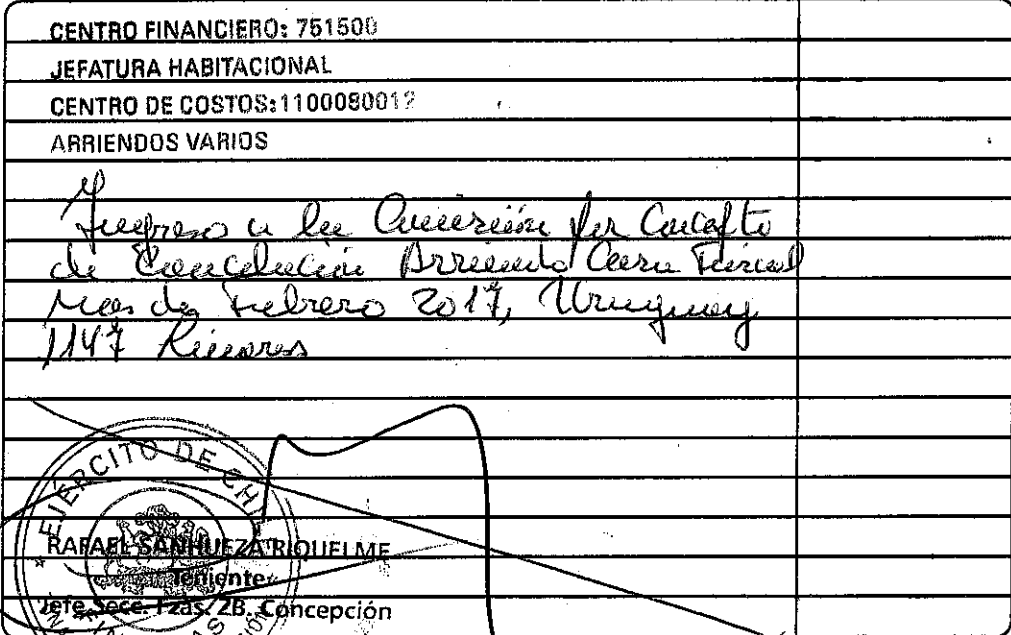 CENTRO FINANCIERO: 751500
JEFATURA HABITACIONAL
CENTRO DE COSTOS: 1100080012
ARRIENDOS VARIOS
Ingreso a la Comisión por Concepto
de Cancelación Arriendo Casa Fiscal
Mes de Febrero 2017, Uruguay
1147
EJÉRCITO DE CHI
RAFAEL SANHUEZA RIQUELME
Teniente
Jefe Secc. Fzas. 2B. Concepción